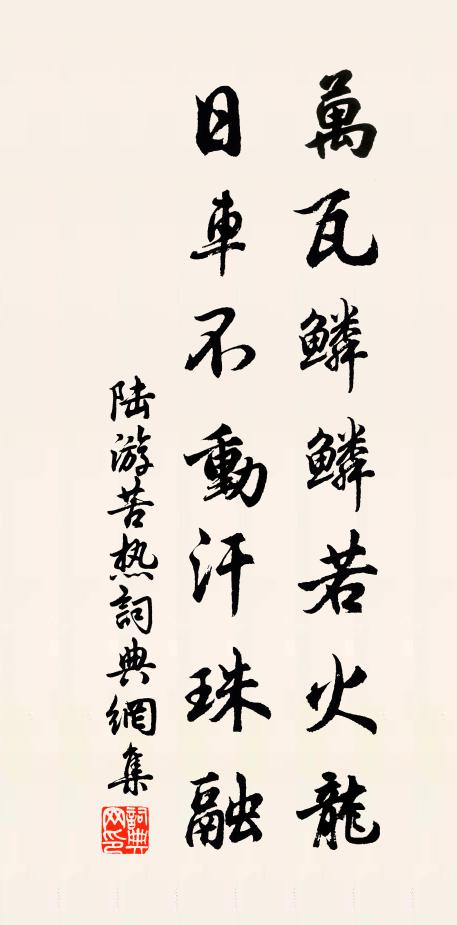 萬瓦鱗鱗若火龍
日車不動汗珠融
陆游苦热詞典網集
詞典网印